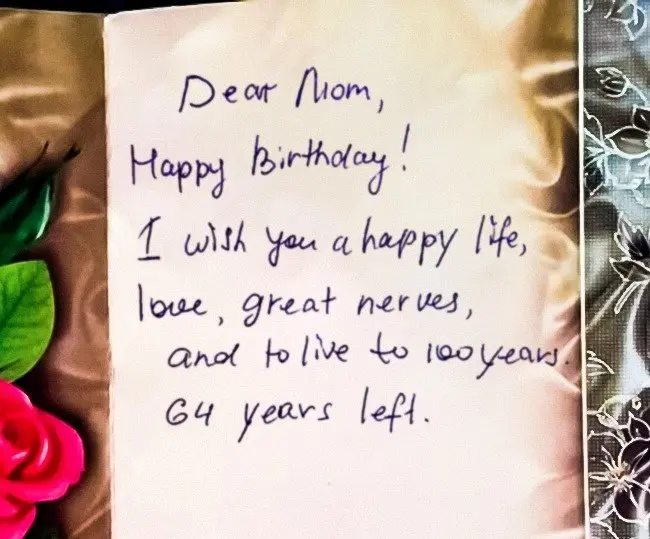 Dear Mom,
Happy Birthday!
I wish you a happy life,
love, great nerves,
and to live to 100 years.
64 years left.